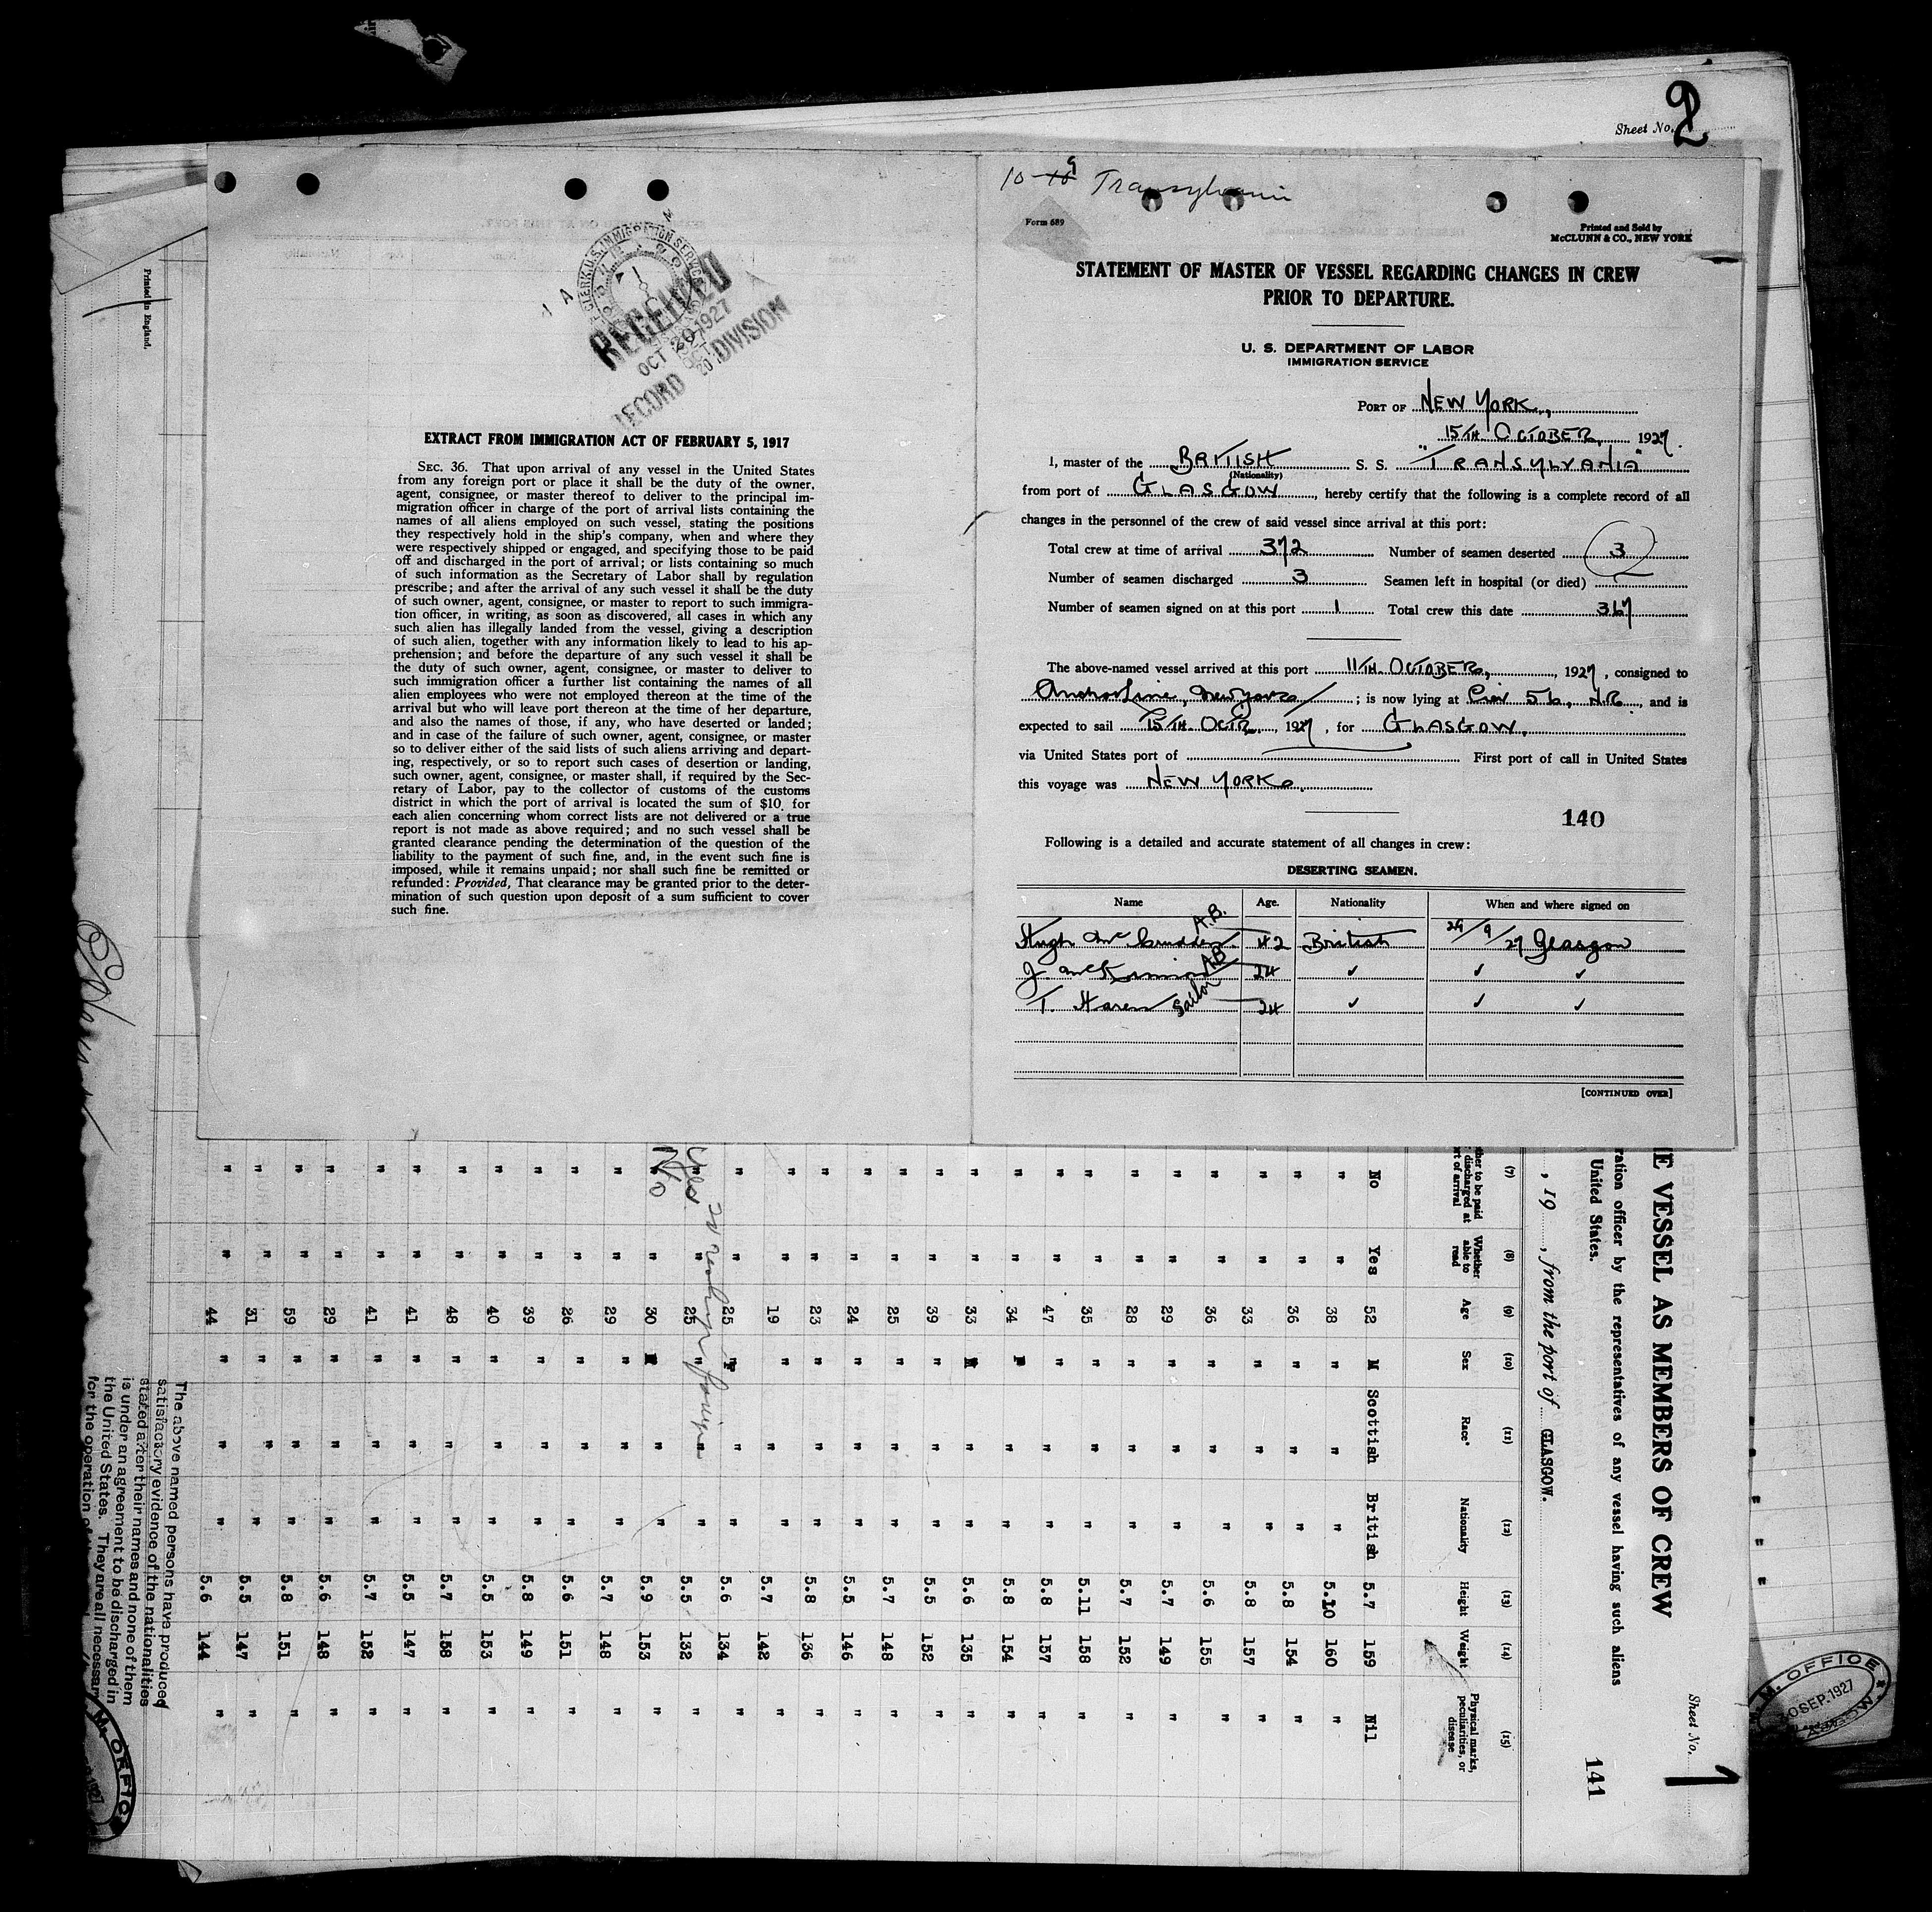 Sheet No. 2
10-9 Transylvania
Form 689
Printed and Sold by
McCLUNN & CO., NEW YORK
STATEMENT OF MASTER OF VESSEL REGARDING CHANGES IN CREW
PRIOR TO DEPARTURE.
U. S. DEPARTMENT OF LABOR
IMMIGRATION SERVICE
PORT OF NEW YORK,
15TH. OCTOBER, 1927.
I, master of the BRITISH S. S. "TRANSYLVANIA"
(Nationality)
from port of GLASGOW, hereby certify that the following is a complete record of all
changes in the personnel of the crew of said vessel since arrival at this port:
Total crew at time of arrival 372 Number of seamen deserted 3
Number of seamen discharged 3 Seamen left in hospital (or died)
Number of seamen signed on at this port 1 Total crew this date 367
The above-named vessel arrived at this port 11TH. OCTOBER, 1927, consigned to
Anchor Line, New York; is now lying at Pier 56, N.R., and is
expected to sail 15TH. OCTR., 1927, for GLASGOW,
via United States port of First port of call in United States
this voyage was NEW YORK.
140
Following is a detailed and accurate statement of all changes in crew:
DESERTING SEAMEN.
Name Age. Nationality When and where signed on
Hugh Mc Crudden A.B. 42 British 29/9/27 Glasgow
J. A.B. 24 ✓ ✓ ✓
T. Sailor 24 ✓ ✓ ✓
[CONTINUED OVER]
U.S. IMMIGRATION SERVICE
RECEIVED
OCT 20 1927
RECORD DIVISION
EXTRACT FROM IMMIGRATION ACT OF FEBRUARY 5, 1917
SEC. 36. That upon arrival of any vessel in the United States
from any foreign port or place it shall be the duty of the owner,
agent, consignee, or master thereof to deliver to the principal im-
migration officer in charge of the port of arrival lists containing the
names of all aliens employed on such vessel, stating the positions
they respectively hold in the ship's company, when and where they
were respectively shipped or engaged, and specifying those to be paid
off and discharged in the port of arrival; or lists containing so much
of such information as the Secretary of Labor shall by regulation
prescribe; and after the arrival of any such vessel it shall be the duty
of such owner, agent, consignee, or master to report to such immigra-
tion officer, in writing, as soon as discovered, all cases in which any
such alien has illegally landed from the vessel, giving a description
of such alien, together with any information likely to lead to his ap-
prehension; and before the departure of any such vessel it shall be
the duty of such owner, agent, consignee, or master to deliver to
such immigration officer a further list containing the names of all
alien employees who were not employed thereon at the time of the
arrival but who will leave port thereon at the time of her departure,
and also the names of those, if any, who have deserted or landed;
and in case of the failure of such owner, agent, consignee, or master
so to deliver either of the said lists of such aliens arriving and depart-
ing, respectively, or so to report such cases of desertion or landing,
such owner, agent, consignee, or master shall, if required by the Sec-
retary of Labor, pay to the collector of customs of the customs
district in which the port of arrival is located the sum of $10 for
each alien concerning whom correct lists are not delivered or a true
report is not made as above required; and no such vessel shall be
granted clearance pending the determination of the question of the
liability to the payment of such fine, and, in the event such fine is
imposed, while it remains unpaid; nor shall such fine be remitted or
refunded: Provided, That clearance may be granted prior to the deter-
mination of such question upon deposit of a sum sufficient to cover
such fine.
Printed in England,
Sheet No. 1
141
E VESSEL AS MEMBERS OF CREW
ration officer by the representatives of any vessel having such aliens
United States.
, 19 , from the port of GLASGOW.
(7) (8) (9) (10) (11) (12) (13) (14) (15)
her to be paid discharged at rt of arrival Whether able to read Age Sex Race* Nationality Height Weight Physical marks, peculiarities, or disease
No Yes 52 M Scottish British 5.7 159 Nil
" " 38 " " " 5.10 160 "
" " 36 " " " 5.8 154 "
" " 33 " " " 5.8 157 "
" " 36 " " " 5.6 155 "
" " 29 " " " 5.7 149 "
" " 28 " " " 5.7 152 "
" " 35 " " " 5.11 158 "
" " 47 " " " 5.8 157 "
" " 34 F " " 5.8 154 "
" " 33 M " " 5.6 135 "
" " 39 " " " 5.5 152 "
" " 25 " " " 5.7 148 "
" " 24 " " " 5.5 146 "
" " 23 " " " 5.8 136 "
" " 19 " " " 5.7 142 "
" " 25 F " " 5.6 134 "
Yes " 25 " " " 5.5 132 "
No " 30 M " " 5.9 153 "
" " 29 " " " 5.7 148 "
" " 26 " " " 5.6 151 "
" " 39 " " " 5.8 149 "
" " 40 " " " 5.5 153 "
" " 48 " " " 5.7 158 "
" " 41 " " " 5.5 147 "
" " 41 " " " 5.7 152 "
" " 29 " " " 5.6 148 "
" " 59 " " " 5.8 151 "
" " 31 " " " 5.5 147 "
" " 44 " " " 5.6 144 "
The above named persons have produced
satisfactory evidence of the nationalities
stated after their names and none of them
is under an agreement to be discharged in
the United States. They are all necessary
for the operation of
M. OFFICE
30 SEP. 1927
GLASGOW
M. OFFIC